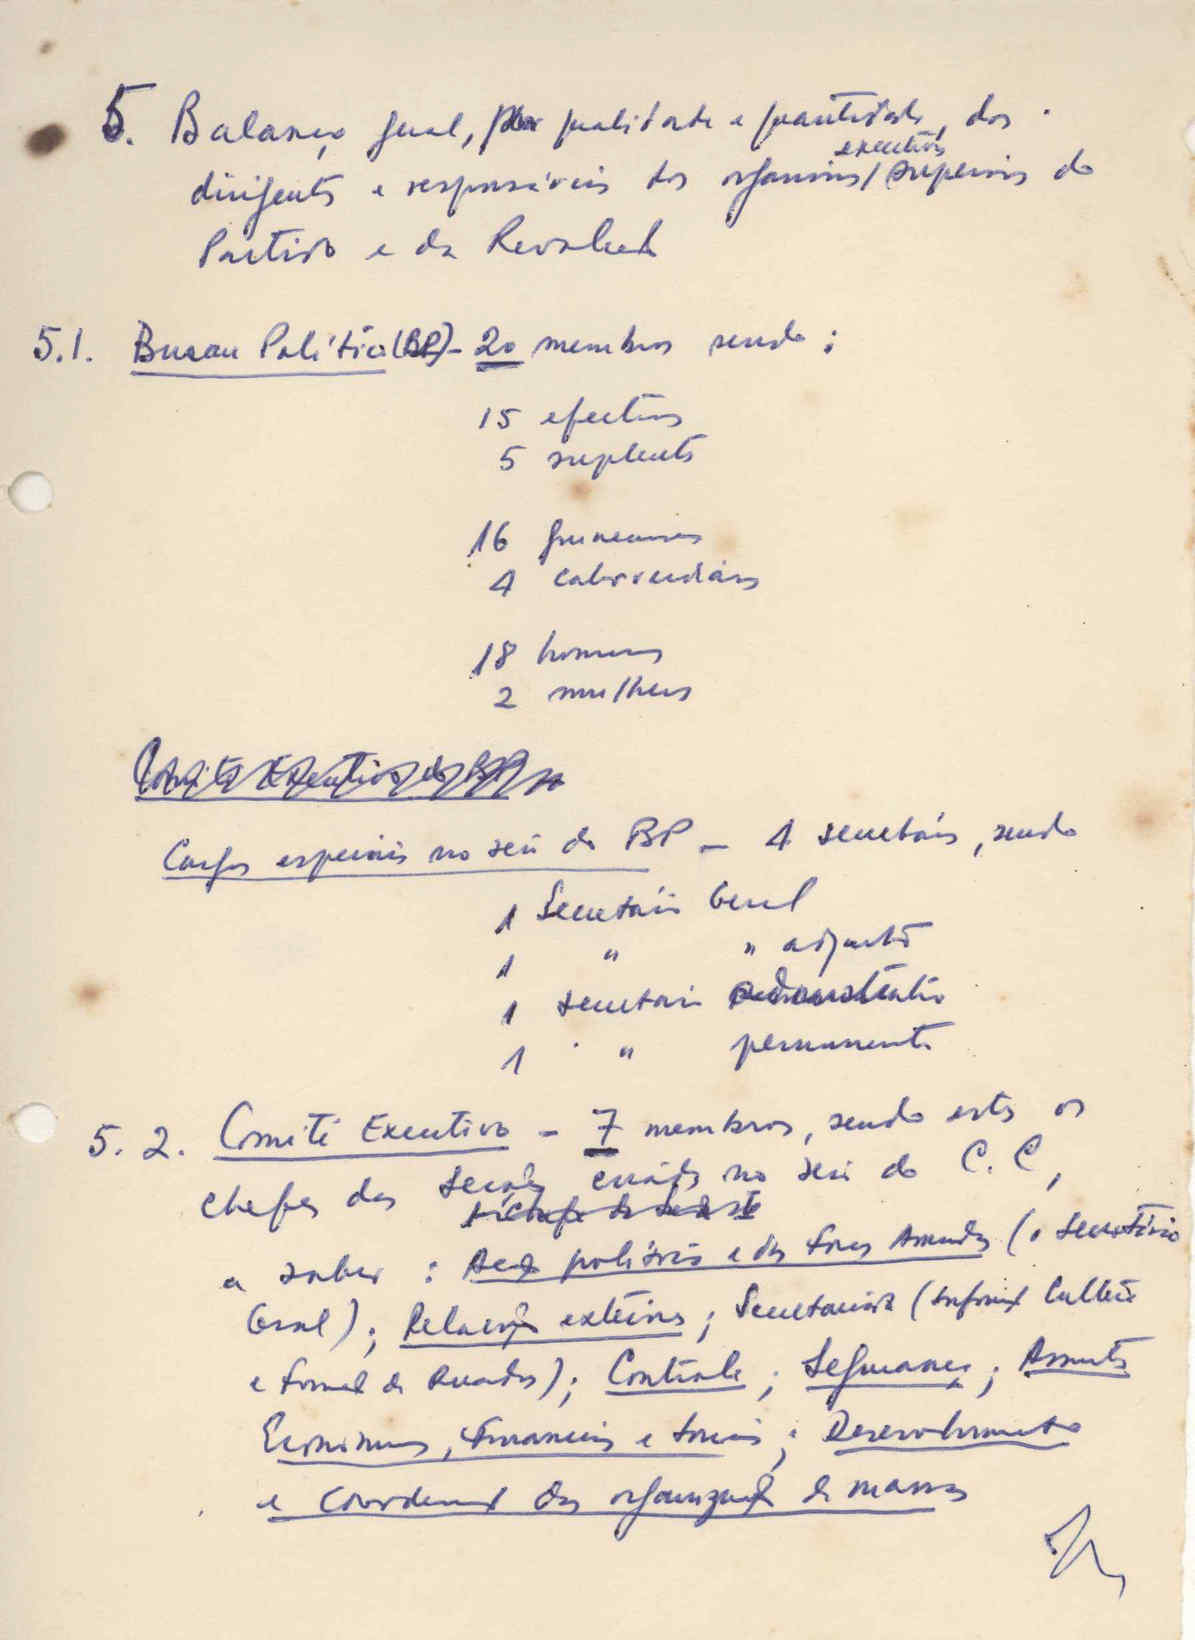 5. Balanço geral, por qualidade e quantidade, dos
executivos
dirigentes e responsáveis dos organismos / superiores do
Partido e da Revolução
5.1. Bureau Político (BP) - 20 membros sendo:
15 efectivos
5 suplentes
16 guineenses
4 caboverdianos
18 homens
2 mulheres
Comité Executivo do BP
Cargos especiais no seio do BP - 4 secretários, sendo
1 Secretário Geral
1 " " adjunto
1 secretário administrativo
1 " permanente
5.2. Comité Executivo - 7 membros, sendo estes os
chefes das secções criadas no seio do C.C,
a saber: Acção política e das Forças Armadas (o Secretário
Geral); Relações exteriores; Secretariado (Informação Cultura
e Formação de Quadros); Controle; Segurança; Assuntos
Económicos, Financeiros e Sociais; Desenvolvimento
e Coordenação das organizações de massas